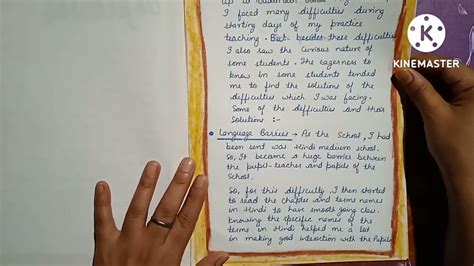 I faced many difficulties during
starting days of my practice
teaching. But besides these difficulties
I also saw the curious nature of
some students. The eagerness to
know in some students tended
me to find the solutions of the
difficulties which I was facing.
Some of the difficulties and their
solution :-
Language Barrier → As the School, I had
been sent was Hindi medium school.
So, it became a huge barrier between
the pupil-teacher and pupils of
the school.
So, for this difficulty, I then started
to read the chapter and terms names
in Hindi to have smooth going class.
Knowing the specific names of the
terms in Hindi helped me a lot
in making good interaction with the Pupils
KINEMASTER